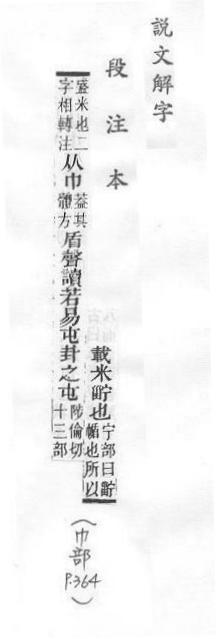 說文解字
段注本
載米也
宁部曰
㡒也所以
盛米也二
字相轉注
从巾
蓋其
體方
盾聲讀若易屯卦之屯
陟倫切
十三部
(巾部
P.364)